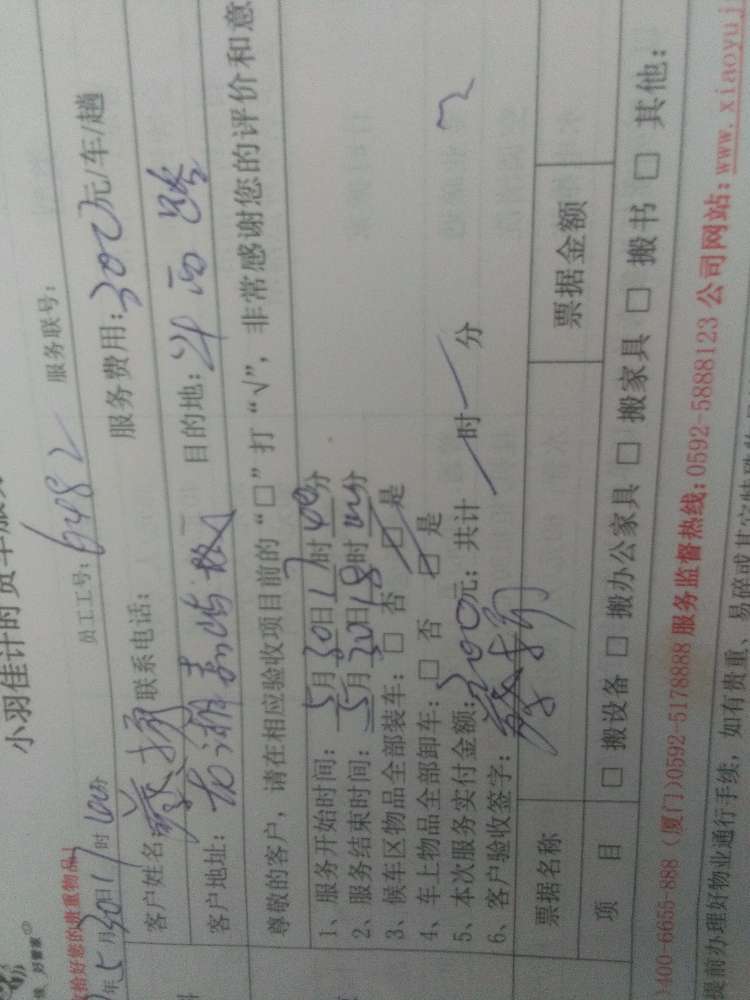 小羽佳计时货车服务
好管家
给好您的贵重物品!
年5月30日17时40分
员工工号: 6482 服务联号:
客户姓名 联系电话: 服务费用: 300元/车/趟
客户地址: 目的地: 路
尊敬的客户, 请在相应验收项目前的“□”打“√”, 非常感谢您的评价和意
1、服务开始时间: 5月30日17时40分
2、服务结束时间: 5月30日18时 分
3、候车区物品全部装车: □ 否 □ 是
4、车上物品全部卸车: □ 否 □ 是
5、本次服务实付金额: 300元; 共计 时 分
6、客户验收签字:
票据名称 票据金额
项 目 □ 搬设备 □ 搬办公家具 □ 搬家具 □ 搬书 □ 其他:
400-6655-888 (厦门)0592-5178888 服务监督热线: 0592-5888123 公司网站: www.xiaoyuj
提前办理好物业通行手续, 如有贵重、易碎或其它特殊物